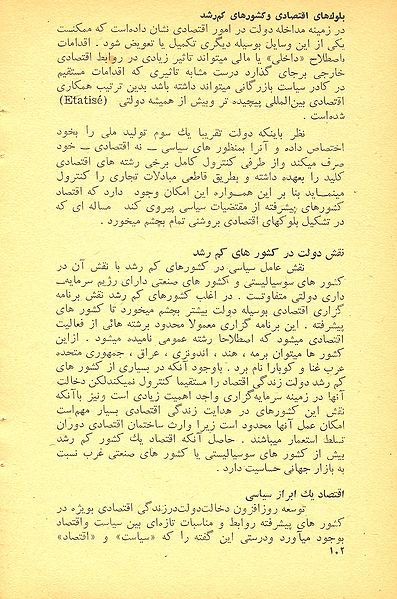 بلوک‌های اقتصادی و کشورهای کم‌رشد
در زمینه مداخله دولت در امور اقتصادی نشان داده‌است که ممکنست
یکی از این وسایل بوسیله دیگری تکمیل یا تعویض شود . اقدامات
باصطلاح «داخلی» یا مالی میتواند تاثیر زیادی در روابط اقتصادی
خارجی برجای گذارد درست مشابه تاثیری که اقدامات مستقیم
در کادر سیاست بازرگانی میتواند داشته باشد بدین ترتیب همکاری
اقتصادی بین‌المللی پیچیده تر وبیش از همیشه دولتی (Etatisé)
شده‌است .
نظر باینکه دولت تقریبا یك سوم تولید ملی را بخود
اختصاص داده و آنرا بمنظور های سیاسی ــ نه اقتصادی ــ خود
صرف میکند واز طرفی کنترول کامل برخی رشته های اقتصادی
کلید را بعهده داشته و بطریق قاطعی مبادلات تجاری را کنترول
مینمــاید بنا بر این همــواره این امکان وجود دارد که اقتصاد
کشورهای پیشرفته از مقتضیات سیاسی پیروی کند مساله ای که
در تشکیل بلوکهای اقتصادی بروشنی تمام بچشم میخورد .
نقش دولت در کشور های کم رشد
نقش عامل سیاسی در کشورهای کم رشد با نقش آن در
کشور های سوسیالیستی و کشور های صنعتی دارای رژیم سرمایه‌ـ
داری دولتی متفاوتست . در اغلب کشورهای کم رشد نقش برنامه
گزاری اقتصادی بوسیله دولت بیشتر بچشم میخورد تا کشور های
پیشرفته . این برنامه گزاری معمولا محدود برشته هائی از فعالیت
اقتصادی میشود که اصطلاحا رشته عمومی نامیده میشود . ازاین
کشور ها میتوان برمه ، هند ، اندونزی ، عراق ، جمهوری متحده
عرب غنا و کوبارا نام برد . باوجود آنکه در بسیاری از کشور های
کم رشد دولت زندگی اقتصاد را مستقیما کنترول نمیکندلکن دخالت
آنها در زمینه سرمایه‌گزاری واجد اهمیت زیادی است ونیز باآنکه
نقش این کشورهای در هدایت زندگی اقتصادی بسیار مهم‌است
امکان عمل آنها محدود است زیرا وارث ساختمان اقتصادی دوران
تسلط استعمار میباشند . حاصل آنکه اقتصاد یك کشور کم رشد
بیش از کشور های سوسیالیستی یا کشور های صنعتی غرب نسبت
به بازار جهانی حساسیت دارد .
اقتصاد یك ابراز سیاسی
توسعه روزافزون دخالت‌دولت‌درزندگی اقتصادی بویژه در
کشور های پیشرفته روابط و مناسبات تازه‌ای بین سیاست واقتصاد
بوجود میآورد ودرستی این گفته را که «سیاست» و «اقتصاد»
۱۰۲